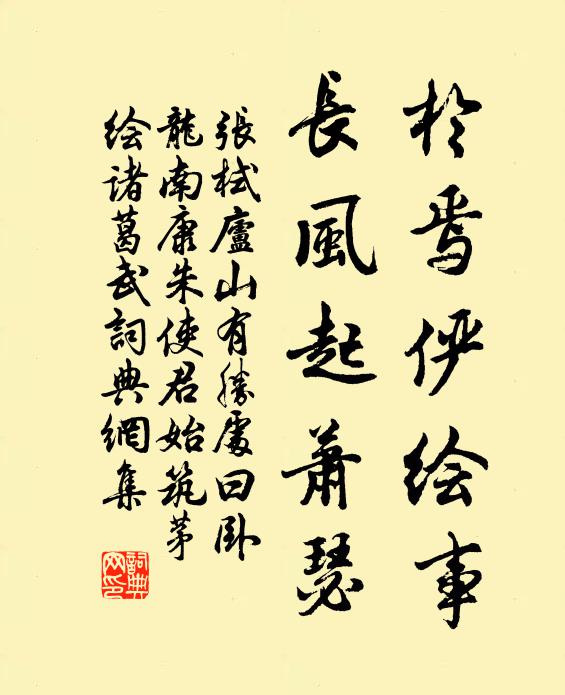 於焉俨绘事
長風起蕭瑟
張栻廬山有勝處曰卧
龍南康朱使君始筑茅
绘诸葛武詞典網集
詞典
网印